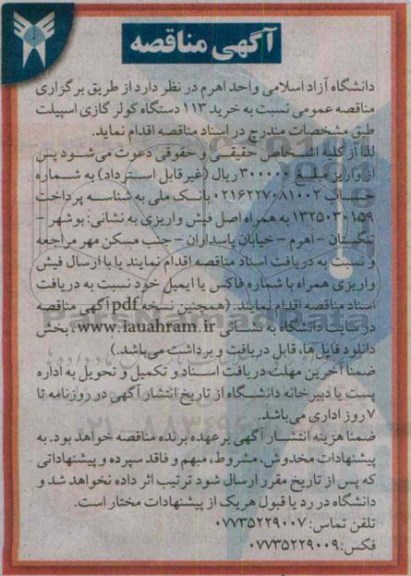 آگهی مناقصه
دانشگاه آزاد اسلامی واحد اهرم در نظر دارد از طریق برگزاری
مناقصه عمومی نسبت به خرید ۱۱۳ دستگاه کولر گازی اسپیلت
طبق مشخصات مندرج در اسناد مناقصه اقدام نماید.
لذا از کلیه اشخاص حقیقی و حقوقی دعوت می‌شود پس
از واریز مبلغ ۳۰۰۰۰۰ ریال (غیرقابل استرداد) به شماره
حساب ۰۲۱۶۲۲۷۰۸۱۰۰۲ بانک ملی به شناسه پرداخت
۱۳۲۵۰۳۰۱۵۹ به همراه اصل فیش واریزی به نشانی: بوشهر -
تنگستان - اهرم - خیابان پاسداران - جنب مسکن مهر مراجعه
و نسبت به دریافت اسناد مناقصه اقدام نمایند یا با ارسال فیش
واریزی همراه با شماره فاکس یا ایمیل خود نسبت به دریافت
اسناد مناقصه اقدام نمایند. (همچنین نسخه pdf آگهی مناقصه
در سایت دانشگاه به نشانی www.iauahram.ir، بخش
دانلود فایل‌ها، قابل دریافت و برداشت می‌باشد.)
ضمنا آخرین مهلت دریافت اسناد و تکمیل و تحویل به اداره
پست یا دبیرخانه دانشگاه از تاریخ انتشار آگهی در روزنامه تا
۷ روز اداری می‌باشد.
ضمنا هزینه انتشار آگهی بر عهده برنده مناقصه خواهد بود. به
پیشنهادات مخدوش، مشروط، مبهم و فاقد سپرده و پیشنهاداتی
که پس از تاریخ مقرر ارسال شود ترتیب اثر داده نخواهد شد و
دانشگاه در رد یا قبول هریک از پیشنهادات مختار است.
تلفن تماس: ۰۷۷۳۵۲۲۹۰۰۷
فکس: ۰۷۷۳۵۲۲۹۰۰۹